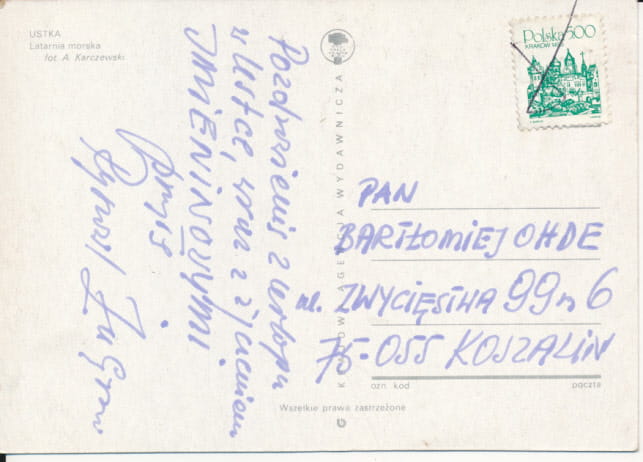 USTKA
Latarnia morska
fot. A. Karczewski
Pozdrowienia z urlopu
w Ustce, wraz z życzeniami
IMIENINOWYMI
Polska 500
KRAKÓW
AGENCJA WYDAWNICZA
PAN
BARTŁOMIEJ OHDE
ul. ZWYCIĘSTWA 99 6
75-055 KOSZALIN
ozn. kod poczta
Wszelkie prawa zastrzeżone